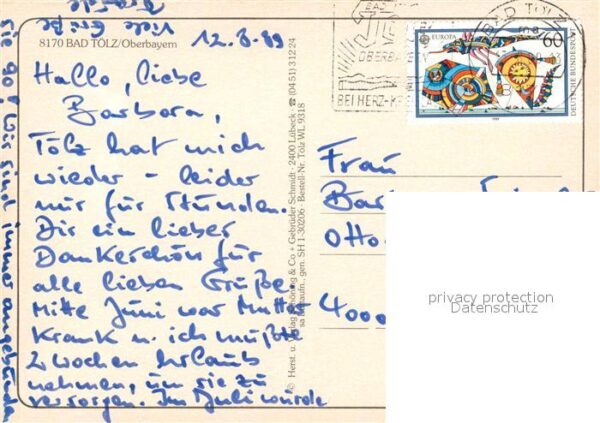 8170 BAD TÖLZ/Oberbayern
12.8.89
Hallo, liebe
Barbara,
Tölz hat mich
wieder - leider
nur für Stunden.
Dir ein lieber
Dankeschön für
alle lieben Grüße.
Mitte Juni war Mutter
krank u. ich mußte
2 Wochen Urlaub
nehmen, um sie zu
versorgen. Im Juli wurde
sie 90! Wir sind immer angebunden
Viele Grüße
© Herst. u. Verlag Schöning & Co + Gebrüder Schmidt · 2400 Lübeck · ☎ (04 51) 3 12 24
gen. SH 1-30206 · Bestell-Nr. Tölz WL 9318
BAD TÖLZ
BEI HERZ-
BAD TÖLZ
EUROPA
60
DEUTSCHE BUNDESPOST
1989
Frau
Otto
4000
privacy protection
Datenschutz